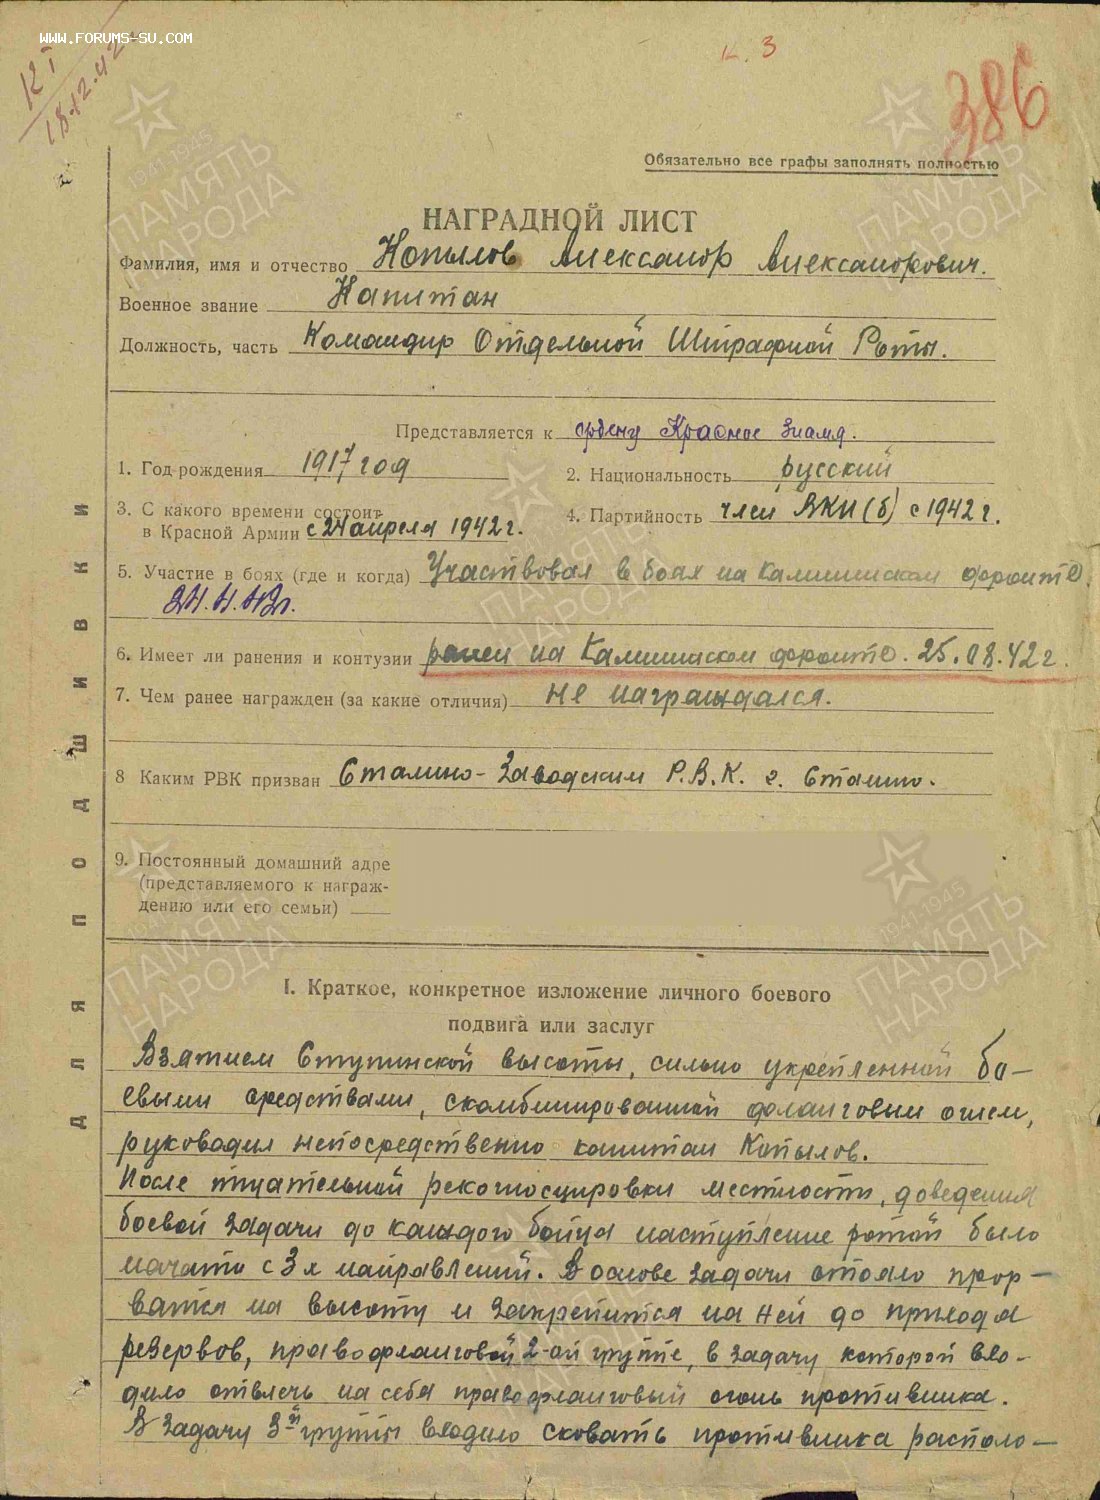 WWW.FORUMS-SU.COM
КГ
18.12.42
к. 3
386
Обязательно все графы заполнять полностью
НАГРАДНОЙ ЛИСТ
Фамилия, имя и отчество Копылов Александр Александрович.
Военное звание Капитан
Должность, часть Командир Отдельной Штрафной Роты.
Представляется к ордену Красное знамя.
1. Год рождения 1917 год
2. Национальность русский
3. С какого времени состоит
в Красной Армии с 24 апреля 1942 г.
4. Партийность член ВКП(б) с 1942 г.
5. Участие в боях (где и когда) Участвовал в боях на Калининском фронте
24.4.42г.
6. Имеет ли ранения и контузии ранен на Калининском фронте. 25.08.42 г.
7. Чем ранее награжден (за какие отличия) не награждался.
8 Каким РВК призван Сталино-Заводским Р.В.К. г. Сталино.
9. Постоянный домашний адре
(представляемого к награж-
дению или его семьи)
ДЛЯ ПОДШИВКИ
I. Краткое, конкретное изложение личного боевого
подвига или заслуг
Взятием Ступинской высоты, сильно укрепленной бо-
евыми средствами, скомбинированной фланговым огнем,
руководил непосредственно капитан Копылов.
После тщательной рекогносцировки местности, доведения
боевой задачи до каждого бойца наступление ротой было
начато с 3х направлений. В основе задачи стояло прор-
ватся на высоту и закрепится на ней до прихода
резервов, правофланговой 2-ой группе, в задачу которой вхо-
дило отвлечь на себя правофланговый огонь противника.
В задачу 3й группы входило сковать противника располо-
1941-1945
ПАМЯТЬ
НАРОДА